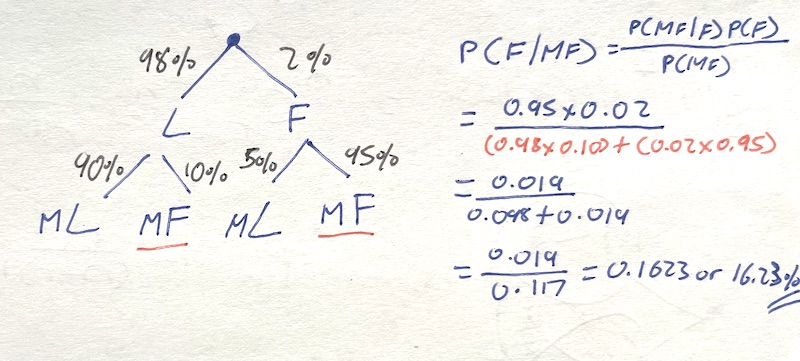 98% 2%
L F
90% 10% 5% 95%
ML MF ML MF
P(F/MF) = P(MF/F) P(F)
P(MF)
= 0.95 x 0.02
(0.98 x 0.10) + (0.02 x 0.95)
= 0.019
0.098 + 0.019
= 0.019 = 0.1623 or 16.23%
0.117